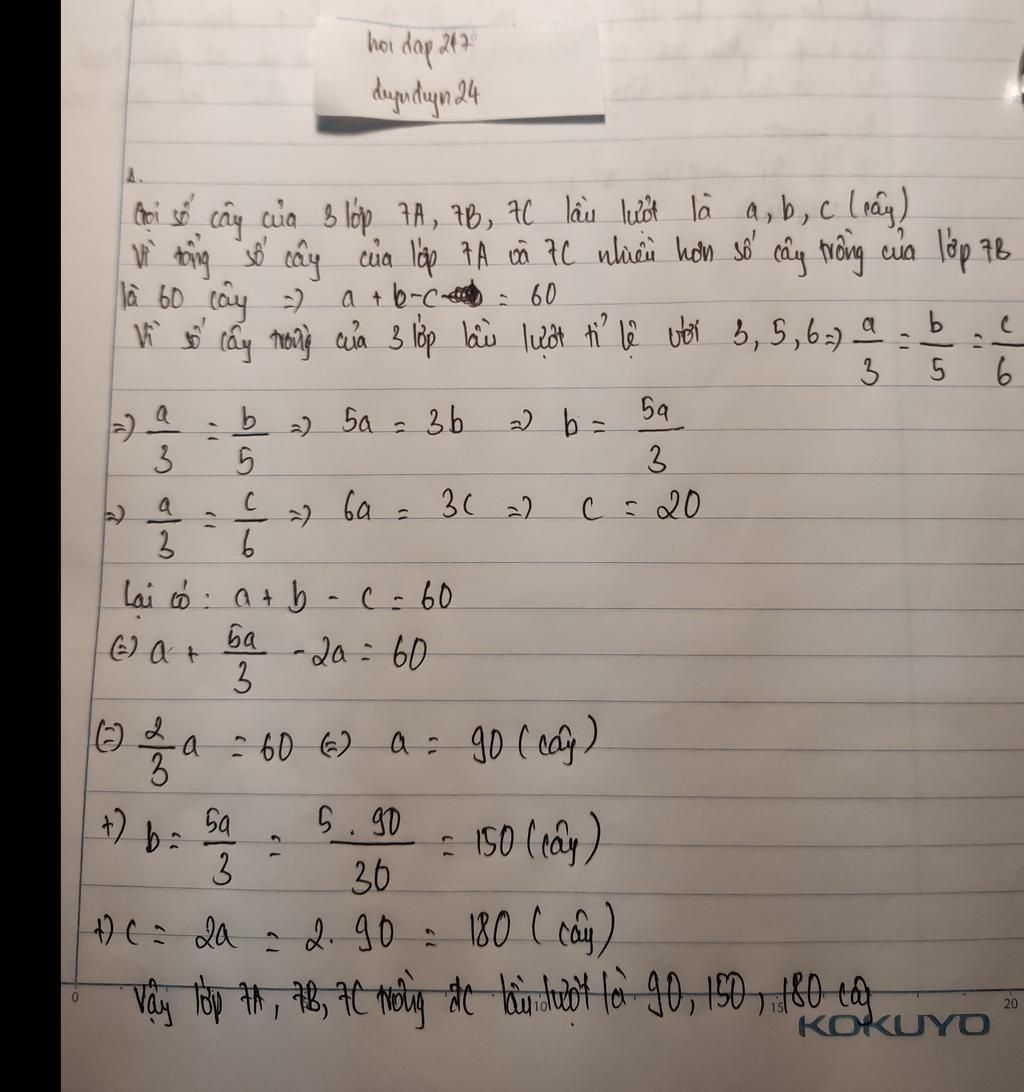 hoi dap 247
duynduyn24
1.
Gọi số cây của 3 lớp 7A, 7B, 7C lần lượt là a, b, c (cây)
Vì tổng số cây của lớp 7A và 7C nhiều hơn số cây trồng của lớp 7B
là 60 cây => a + b - c = 60
Vì số cây trồng của 3 lớp lần lượt tỉ lệ với 3, 5, 6 => a/3 = b/5 = c/6
=> a/3 = b/5 => 5a = 3b => b = 5a/3
=> a/3 = c/6 => 6a = 3c => c = 20
Lại có: a + b - c = 60
(=) a + 5a/3 - 2a = 60
(=) 2/3 a = 60 (=) a = 90 (cây)
+) b = 5a/3 = 5 . 90/30 = 150 (cây)
+) c = 2a = 2. 90 = 180 (cây)
Vậy lớp 7A, 7B, 7C trồng đc lần lượt là 90, 150, 180 cây
0 10 15 20
KOKUYO